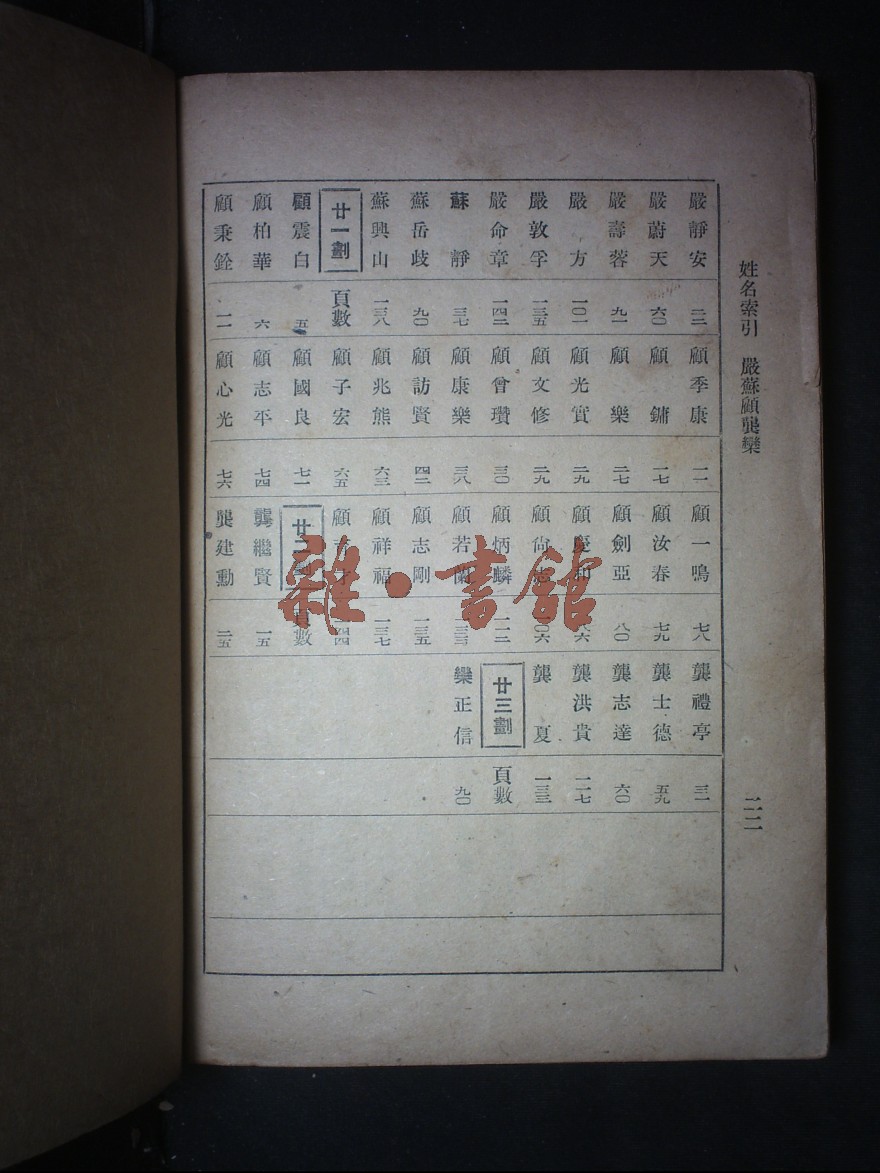 姓名索引 嚴蘇顧龔欒
二二
嚴靜安 二二
嚴蔚天 六〇
嚴壽蓉 九一
嚴方 一〇一
嚴敦孚 一三五
嚴命章 一四二
蘇靜 三七
蘇岳歧 九〇
蘇興山 一三八
廿一劃 頁數
顧震白 五
顧柏華 六
顧秉銓 一一
顧季康 一一
顧鏞 一七
顧樂 二七
顧光實 二九
顧文修 二九
顧曾瓚 三〇
顧康樂 三八
顧訪賢 四二
顧兆熊 六三
顧子宏 六五
顧國良 七一
顧志平 七四
顧心光 七六
顧一鳴 七八
顧汝春 七九
顧劍亞 八〇
顧慶和
顧尙志 一〇六
顧炳麟 一一二
顧若蘭
顧志剛 一三五
顧祥福 一三七
顧
廿二劃 頁數
龔繼賢 一五
龔建勳 二五
龔禮亭 三一
龔士德 五九
龔志達 六〇
龔洪貴 一二七
龔夏 一三三
廿三劃 頁數
欒正信 九〇
雜·書館